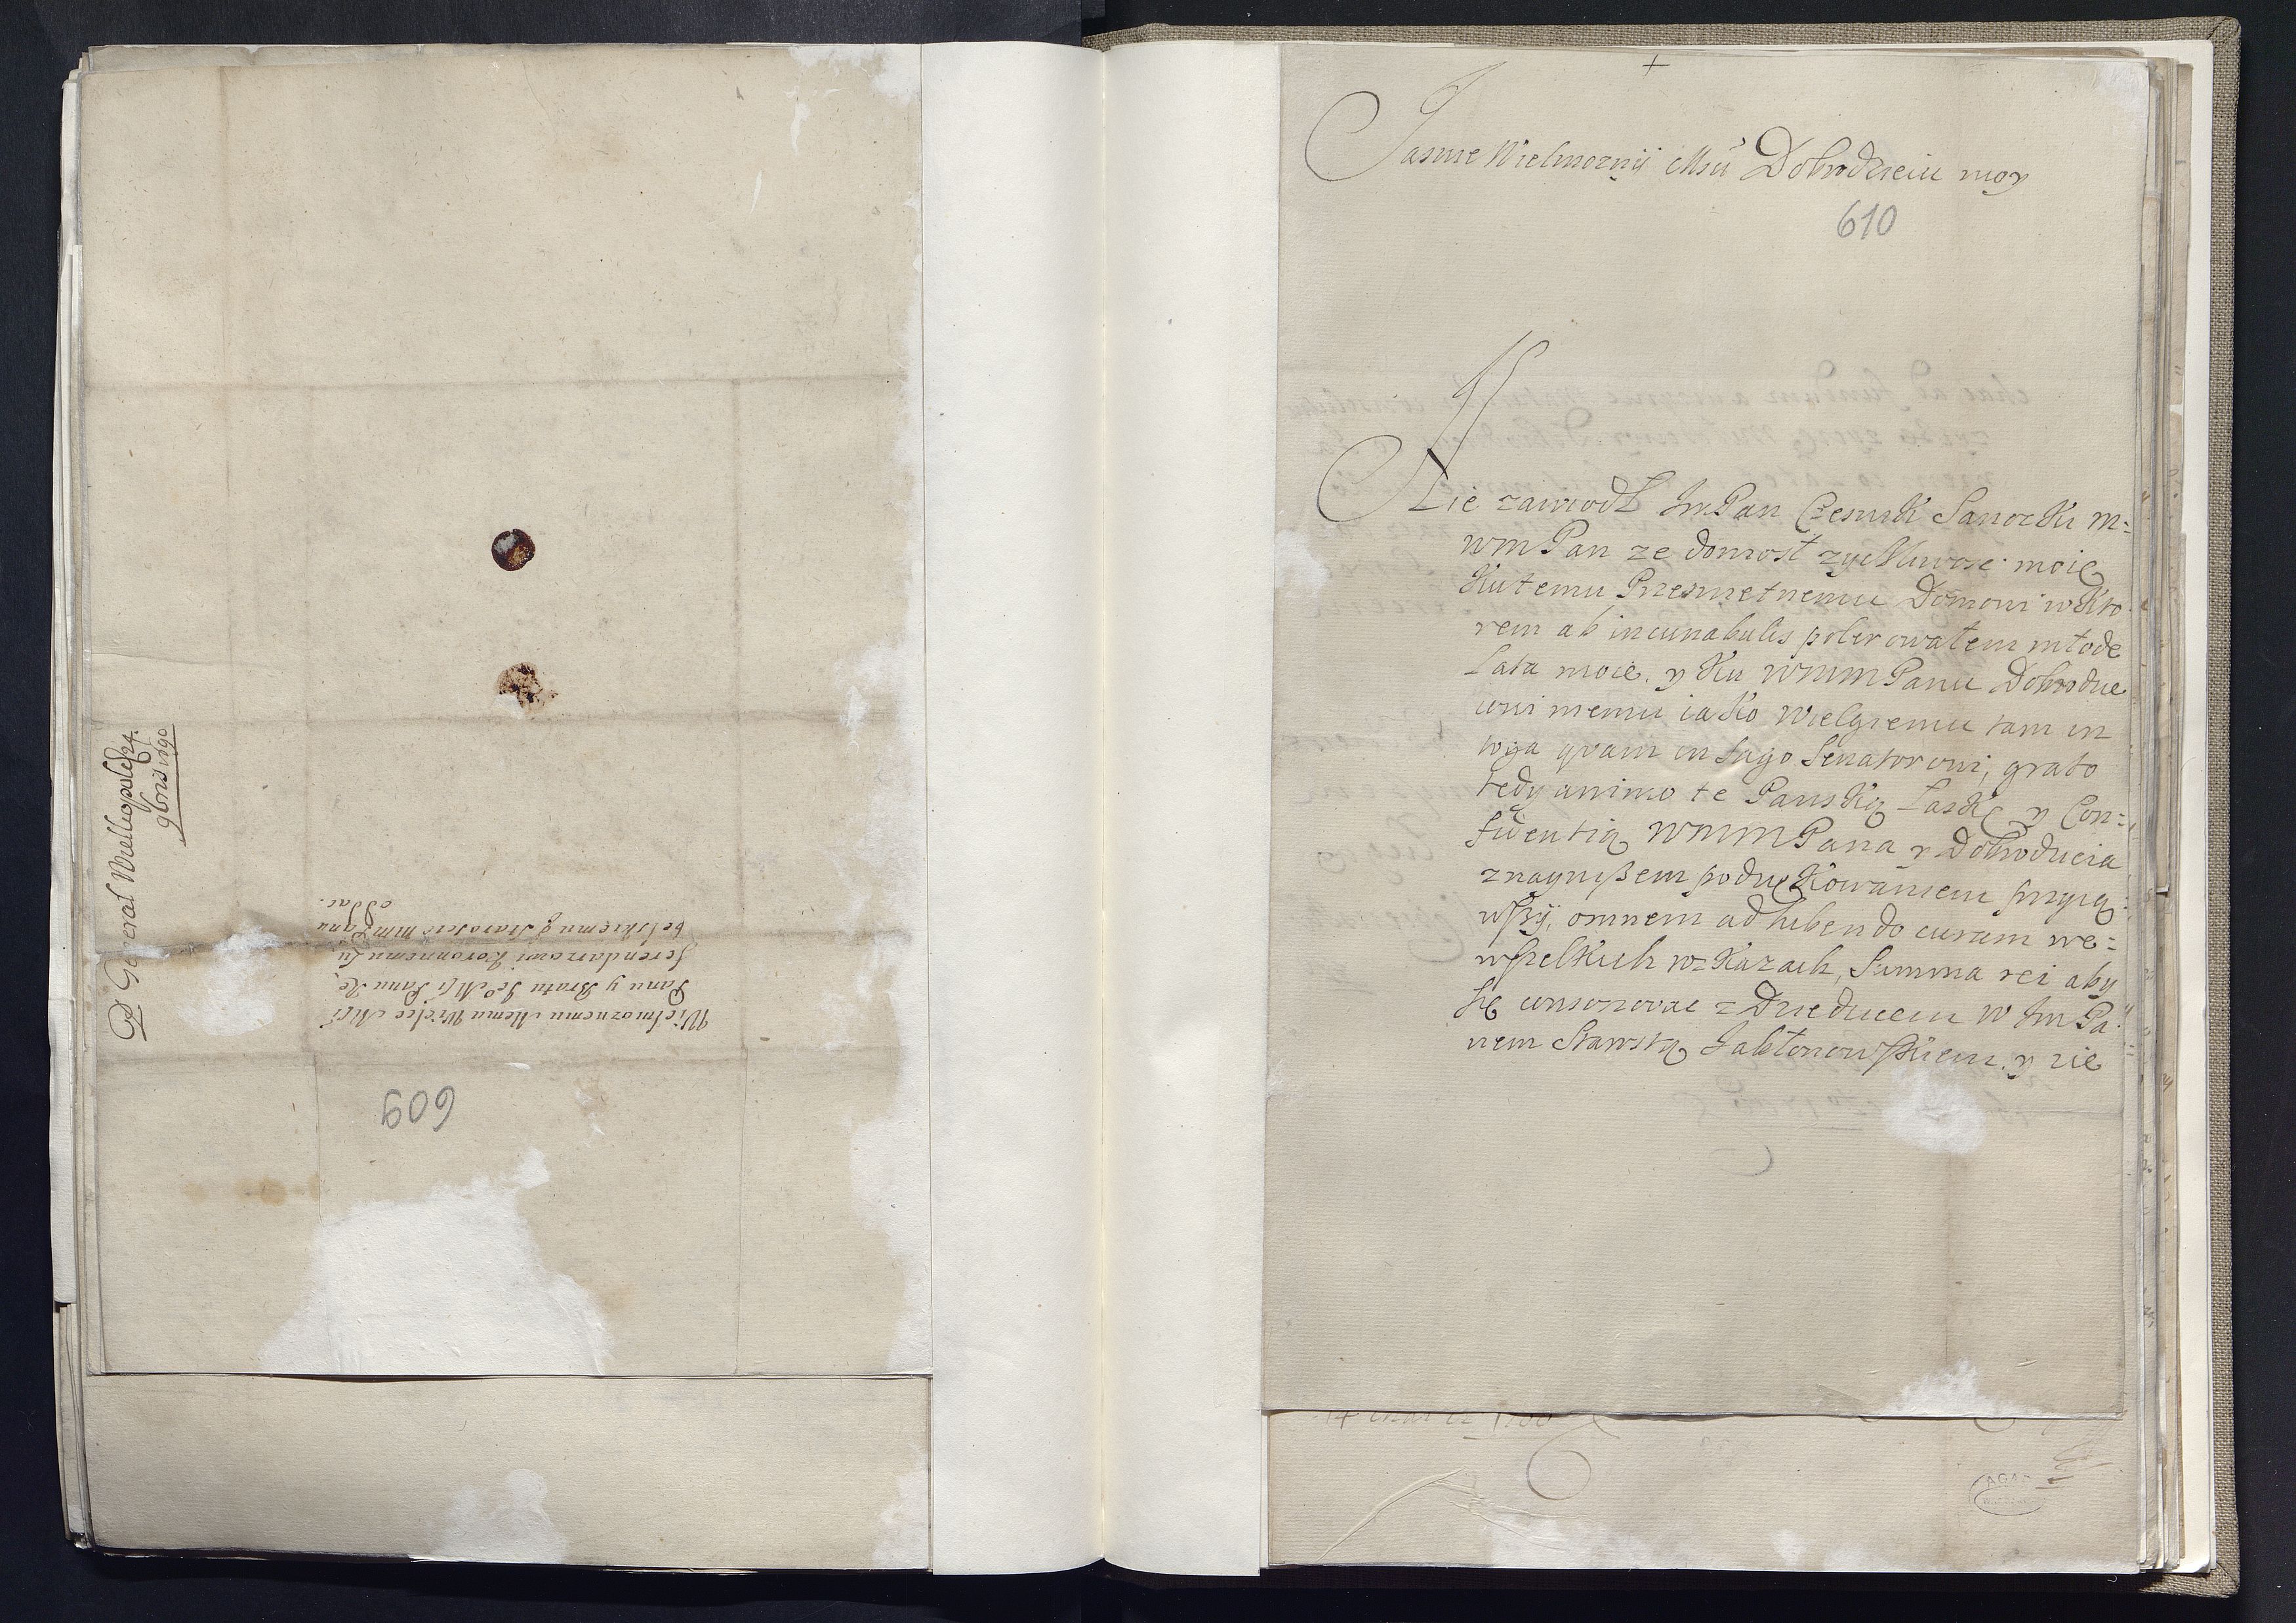 P General Wiellopolsk 24
9bris 1690
Wielmoznemu Memu Wielce Mći
Panu y Bratu Je° Mći Panu Re,
ferendarzowi Koronnemu Lu,
belskiemu & Staroscie mm Panu
oddac.
609
+
Jasnie Wielmoznÿ Msći Dobrodzieiu moy
610
Nie zawiodł Im Pan Czesnik Sanocki m=
wm Pan ze doniosł zyczliwosc moię
Ku temu Przeswietnemu Domowi w Kto
rem ab incunabulis polerowałem młode
Lata moie, y Ku WMM Panu Dobrodzie
iowi memu iako wielgiemu tam in
toga quam in sago Senatorowi, grato
tedy animo te Panską Łaskę y Con=
fidentią WMM Pana y Dobrodzieia
znaynisszem podziękowaniem przyią=
wszÿ, omnem adhibendo curam we=
wszelkich wskazach, Summa rei aby
się censorowac z Dziedzicem w Im Pa=
nem Starostą Jabłonowskiem, y nie
AGAD